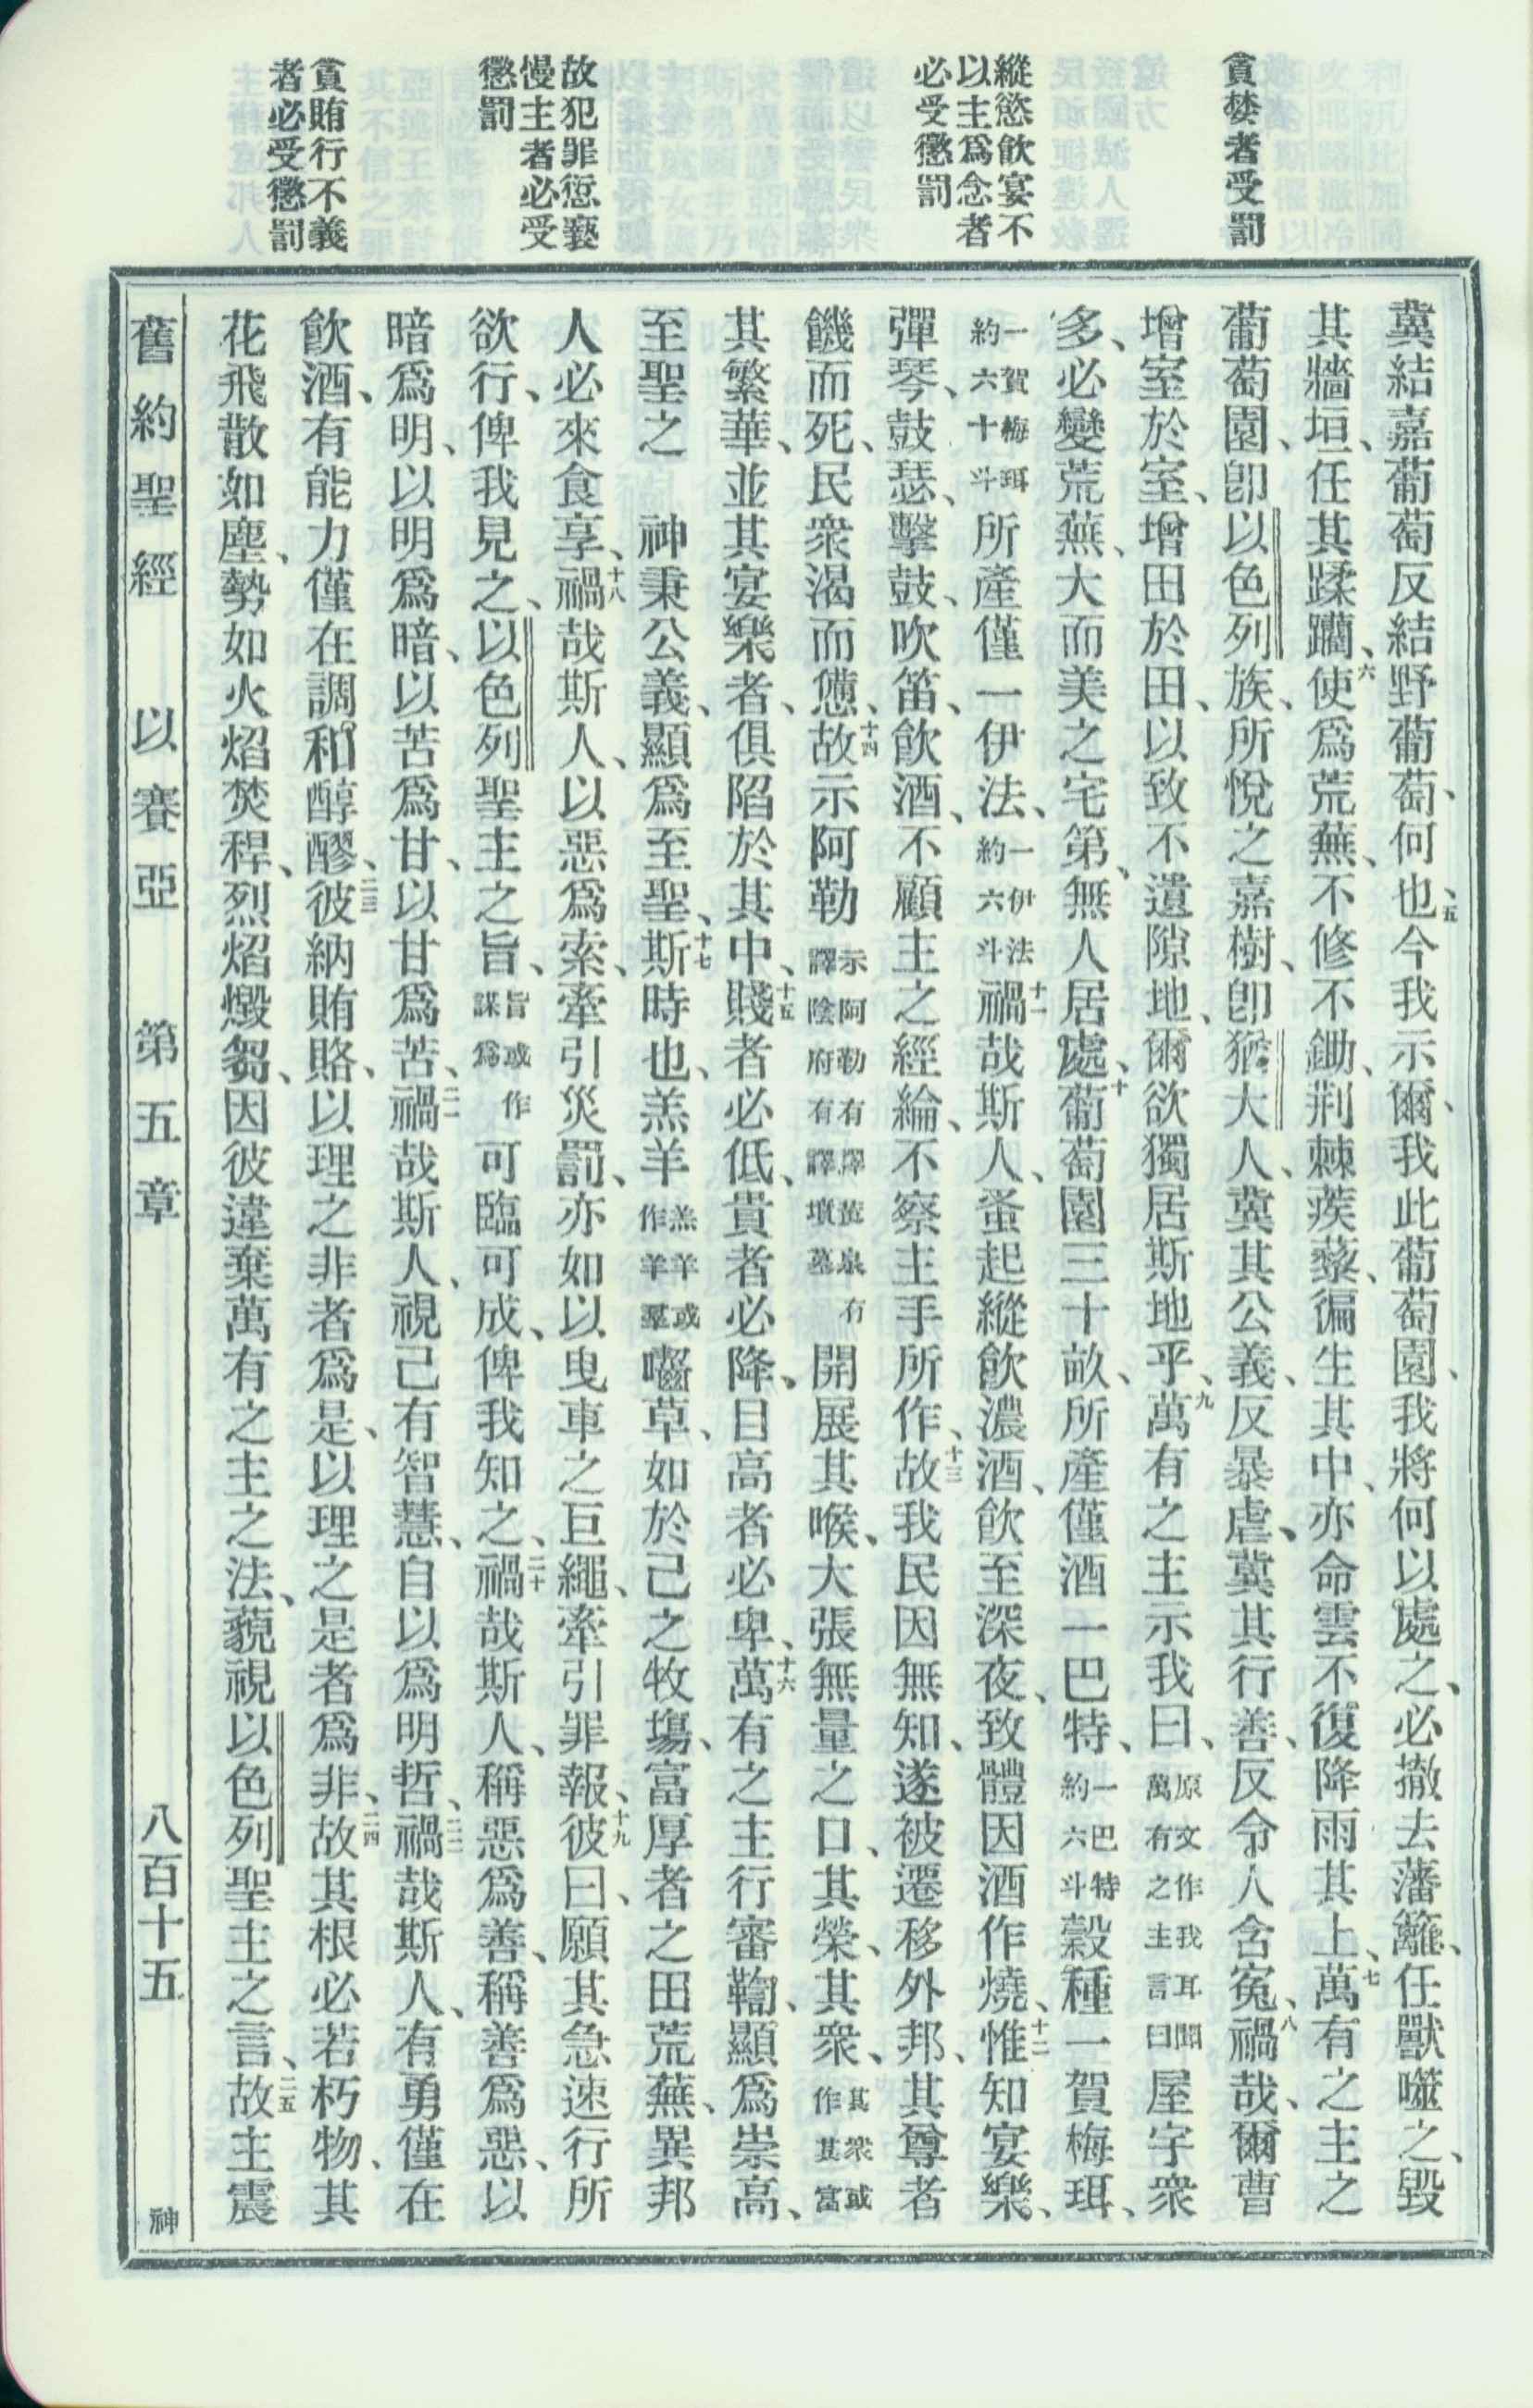 貪婪者受罰
縱慾飲宴不
以主爲念者
必受懲罰
故犯罪愆褻
慢主者必受
懲罰
貪賄行不義
者必受懲罰
冀結嘉葡萄反結野葡萄、何也、五今我示爾、我此葡萄園、我將何以處之、必撤去藩籬、任獸噬之、毀
其牆垣、任其蹂躪、六使爲荒蕪、不修不鋤、荆棘蒺藜、徧生其中、亦命雲不復降雨其上、七萬有之主之
葡萄園、卽以色列族、所悅之嘉樹、卽猶大人、冀其公義、反暴虐、冀其行善、反令人含寃、八禍哉、爾曹
增室於室、增田於田、以致不遺隙地、爾欲獨居斯地乎、九萬有之主示我曰、原文作我耳聞萬有之主言曰屋宇衆
多、必變荒蕪、大而美之宅第、無人居處、十葡萄園三十畝、所產僅酒一巴特、一巴特約六斗穀種一賀梅珥、
一賀梅珥約六十斗所產僅一伊法、一伊法約六斗十一禍哉斯人、蚤起縱飲濃酒、飲至深夜、致體因酒作燒、十二惟知宴樂、
彈琴、鼓瑟、擊鼓、吹笛、飲酒、不顧主之經綸、不察主手所作、十三故我民因無知、遂被遷移外邦、其尊者
饑而死、民衆渴而憊、十四故示阿勒示阿勒有譯黃泉有譯陰府有譯墳墓開展其喉、大張無量之口、其榮、其衆、其衆或作其富
其繁華、並其宴樂者、俱陷於其中、十五賤者必低、貴者必降、目高者必卑、十六萬有之主行審鞫、顯爲崇高、
至聖之 神秉公義、顯爲至聖、十七斯時也、羔羊羔羊或作羊羣嚙草、如於己之牧塲、富厚者之田荒蕪、異邦
人必來食享、十八禍哉斯人、以惡爲索、牽引災罰、亦如以曳車之巨繩、牽引罪報、十九彼曰、願其急速行所
欲行、俾我見之、以色列聖主之旨、旨或作謀爲可臨可成、俾我知之、二十禍哉斯人、稱惡爲善、稱善爲惡、以
暗爲明、以明爲暗、以苦爲甘、以甘爲苦、二一禍哉斯人、視己有智慧、自以爲明哲、二二禍哉斯人、有勇僅在
飲酒、有能力僅在調和醇醪、二三彼納賄賂、以理之非者爲是、以理之是者爲非、二四故其根必若朽物、其
花飛散如塵、勢如火焰焚稈、烈焰燬芻、因彼違棄萬有之主之法、藐視以色列聖主之言、二五故主震
舊約聖經 以賽亞 第五章 八百十五 神